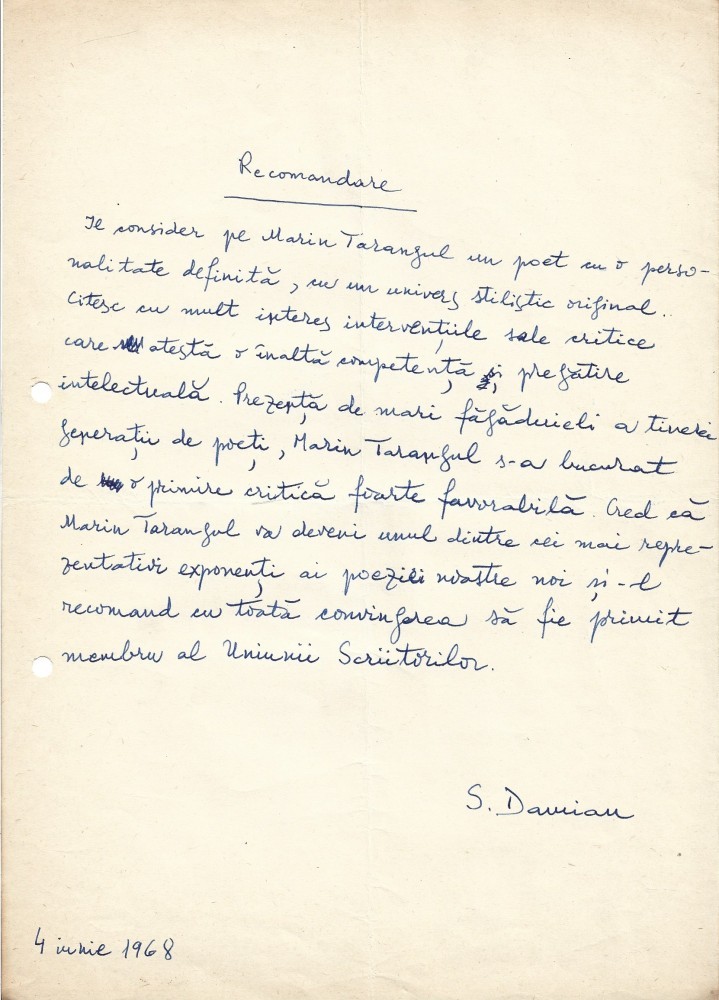 Recomandare
Îl consider pe Marin Tarangul un poet cu o perso-
nalitate definită, cu un univers stilistic original.
Citesc cu mult interes intervențiile sale critice
care atestă o înaltă competență și pregătire
intelectuală. Prezență de mari făgăduieli a tinerei
generații de poeți, Marin Tarangul s-a bucurat
de o primire critică foarte favorabilă. Cred că
Marin Tarangul va deveni unul dintre cei mai repre-
zentativi exponenți ai poeziei noastre noi și-l
recomand cu toată convingerea să fie primit
membru al Uniunii Scriitorilor.
S. Damian
4 iunie 1968